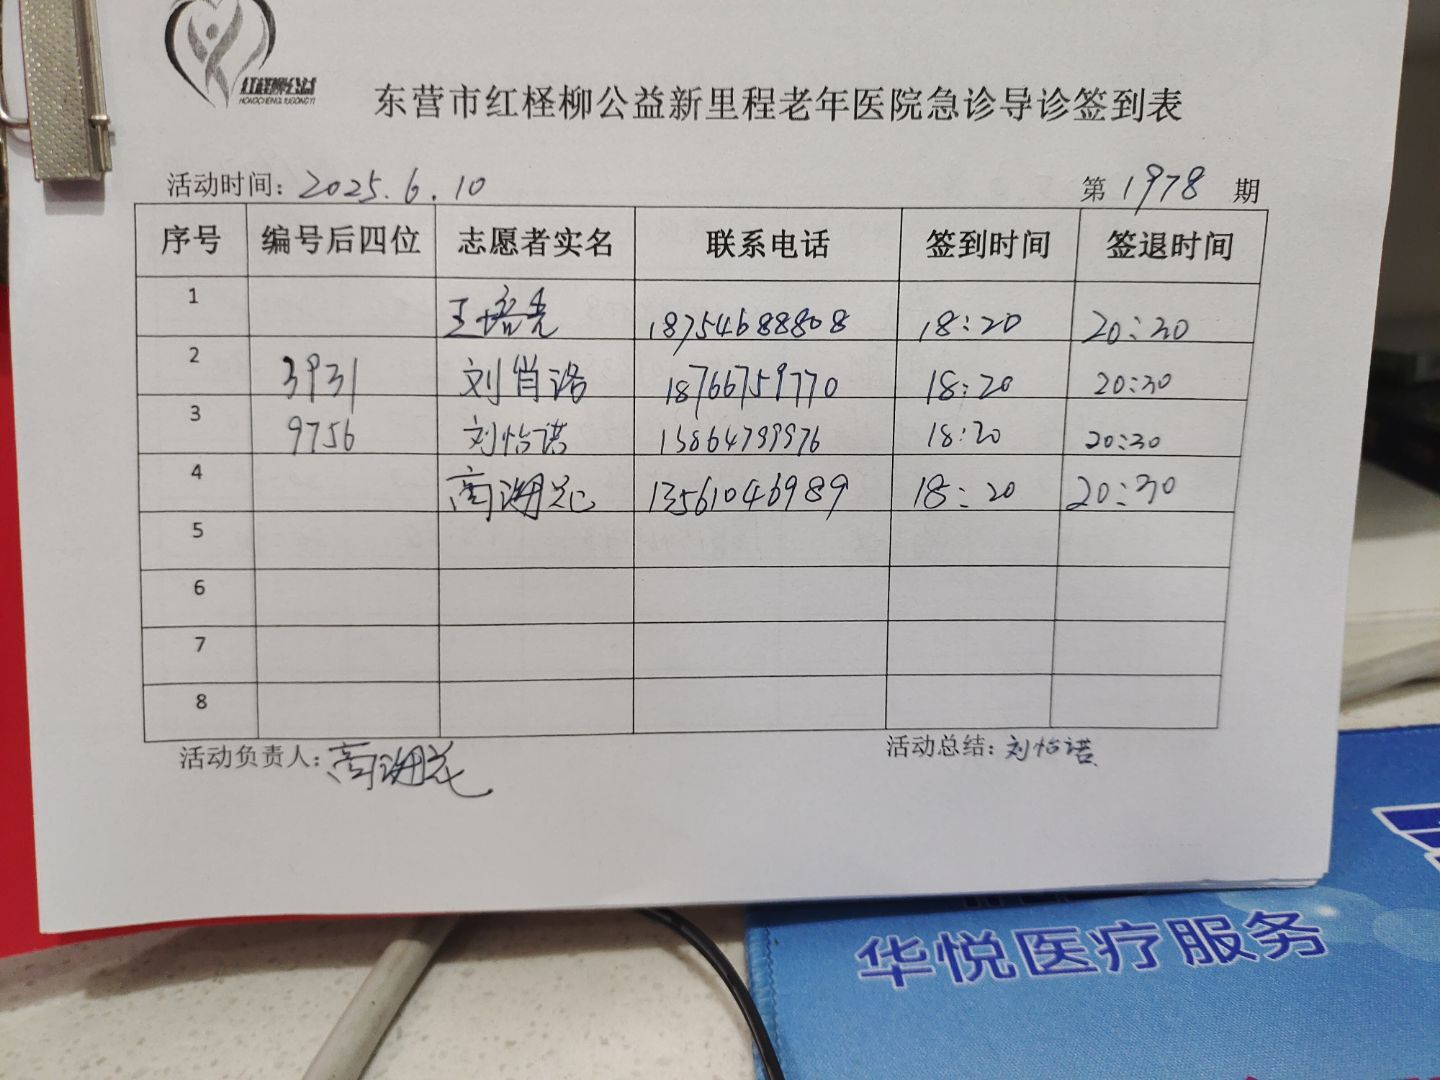 红柽柳公益
HONGCHENGLIUGONGYI
东营市红柽柳公益新里程老年医院急诊导诊签到表
活动时间：2025.6.10 第1978期
序号 编号后四位 志愿者实名 联系电话 签到时间 签退时间
1 王培亮 18754688808 18:20 20:30
2 3931 刘肖洛 18766759770 18:20 20:30
3 9756 刘怡诺 18:20 20:30
4 高 13561046989 18:20 20:30
5
6
7
8
活动负责人：高 活动总结：刘怡诺
华悦医疗服务